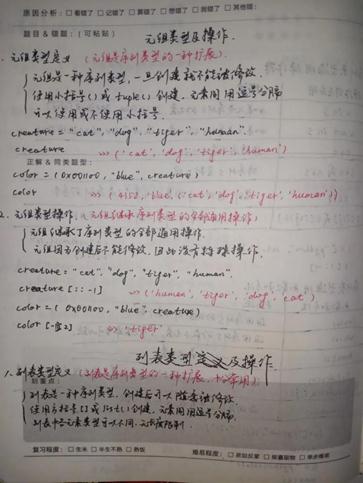 原因分析: □看错了 □记错了 □算错了 □想错了 □我错了 □其他错:
题目&错题: (可粘贴)
元组类型及操作.
1. 元组类型定义 (元组是序列类型的一种扩展)
元组是一种序列类型, 一旦创建就不能被修改.
使用小括号()或 tuple() 创建. 元素间用逗号分隔
可以使用或不使用小括号.
creature = "cat", "dog", "tiger", "human".
creature >>> ('cat', 'dog', 'tiger', 'human')
正解&同类题型:
color = (0x001100, "blue", creature)
color >>> (4352, 'blue', ('cat', 'dog', 'tiger', 'human'))
2. 元组类型操作. (元组继承序列类型的全部通用操作)
元组继承了序列类型的全部通用操作.
元组因为创建后不能修改, 因此没有特殊操作.
creature = "cat", "dog", "tiger", "human".
creature[::-1] >>> ('human', 'tiger', 'dog', 'cat')
color = (0x001100, "blue", creature)
color[-1][2] >>> 'tiger'
列表类型定义及操作.
1. 列表类型定义 (列表是序列类型的一种扩展, 十分常用)
划重点:
列表是一种序列类型, 创建后可以随意被修改
使用方括号[]或list()创建. 元素间用逗号分隔.
列表中各元素类型可以不同, 无长度限制.
复习程度: □生米 □半生不熟 □熟饭